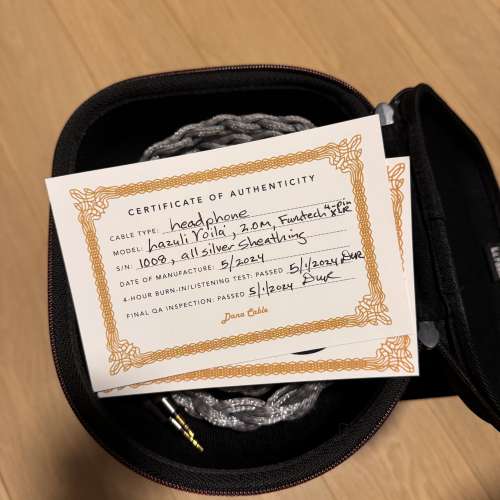 CERTIFICATE OF AUTHENTICITY
CABLE TYPE: headphone
MODEL: Lazuli Voila, 2.0m, Furutech 4-pin XLR
S/N: 1008, all silver sheathing
DATE OF MANUFACTURE: 5/2024
4-HOUR BURN-IN/LISTENING TEST: PASSED 5/1/2024
FINAL QA INSPECTION: PASSED 5/1/2024
Dana Cable